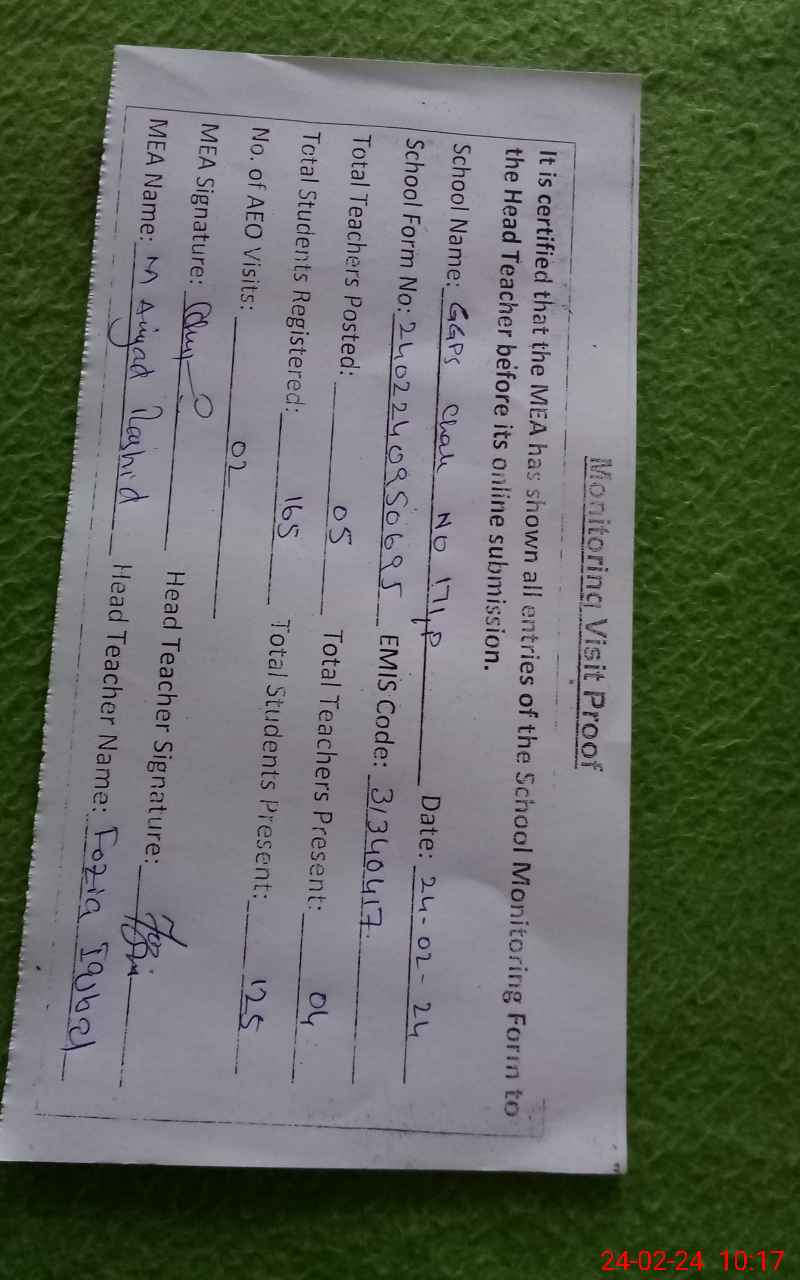 Monitoring Visit Proof
It is certified that the MEA has shown all entries of the School Monitoring Form to
the Head Teacher before its online submission.
School Name: GGPS Chak No 171,P Date: 24-02-24
School Form No: 2402240950695 EMIS Code: 31340417
Total Teachers Posted: 05 Total Teachers Present: 04
Total Students Registered: 165 Total Students Present: 125
No. of AEO Visits: 02
MEA Signature: Head Teacher Signature:
MEA Name: M Amjad Rashid Head Teacher Name: Fozia Iqbal
24-02-24 10:17